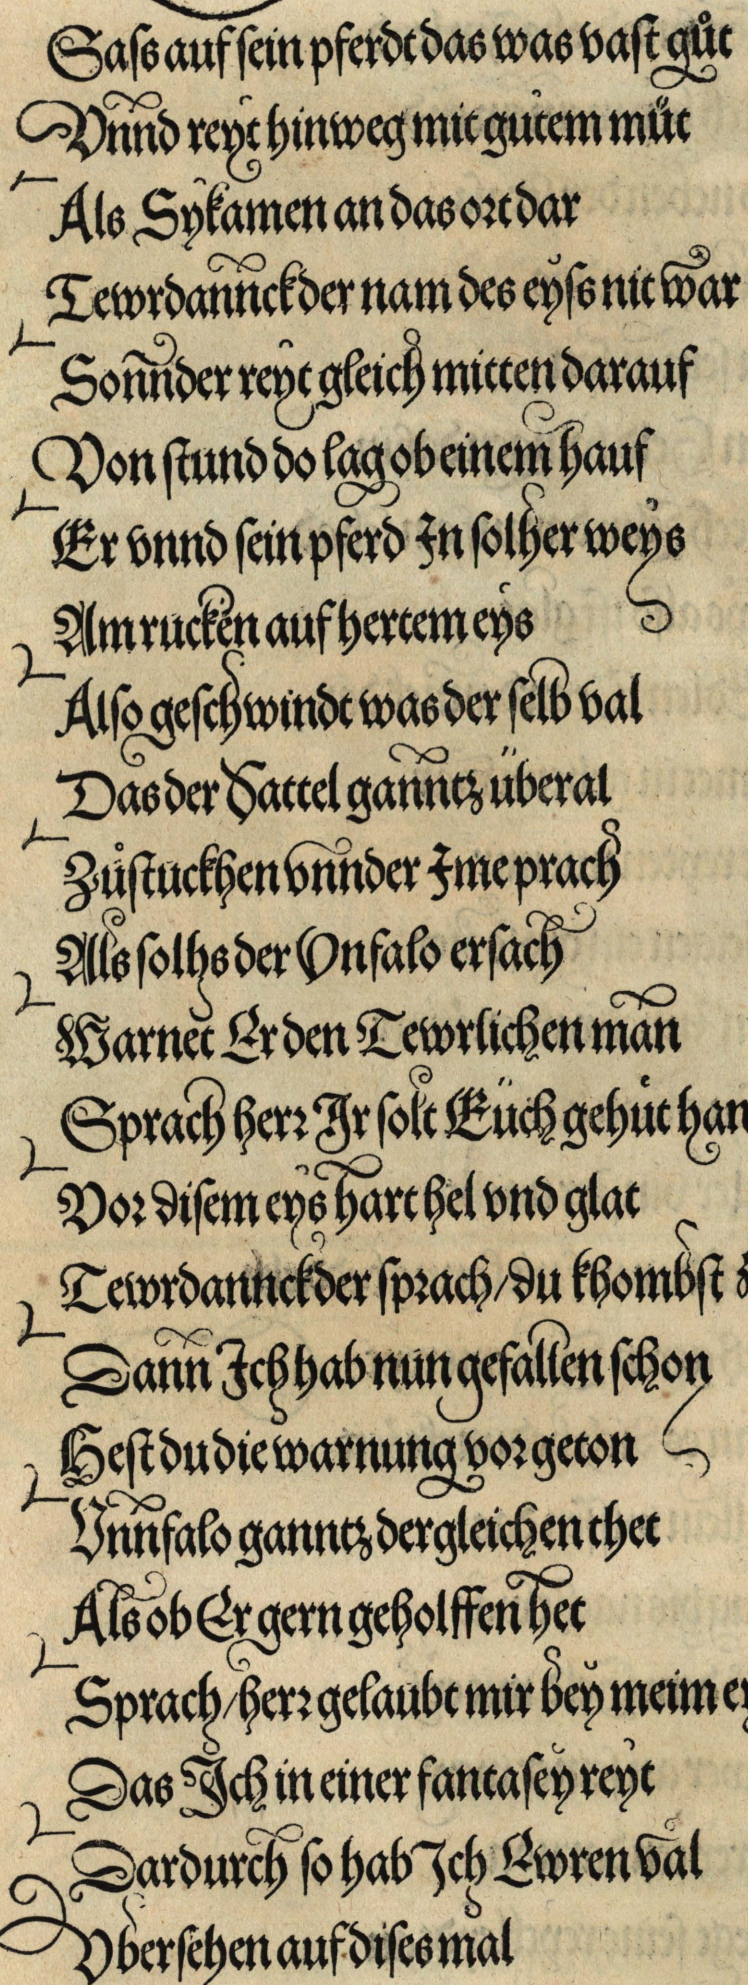 Sass auf sein pferdt das was vast gůt
Vnnd reyt hinweg mit gutem můt
Als Sy kamen an das ort dar
Tewrdannck der nam des eyss nit war
Sonnder reyt gleich mitten darauf
Von stund do lag ob einem hauf
Er vnnd sein pferd In solher weys
Am rucken auf hertem eys
Also geschwindt was der selb val
Das der Sattel ganntz überal
Zů stuckhen vnnder Ime prach
Als solhs der Vnfalo ersach
Warnet Er den Tewrlichen man
Sprach herr Ir solt Eüch gehut han
Vor disem eys hart hel vnd glat
Tewrdannck der sprach / du khombst
Dann Ich hab nun gefallen schon
Hest du die warnung vor geton
Vnnfalo ganntz dergleichen thet
Als ob Er gern geholffen het
Sprach / herr gelaubt mir bey meim
Das Ich in einer fantasey reyt
Dardurch so hab Ich Ewren val
Vbersehen auf dises mal